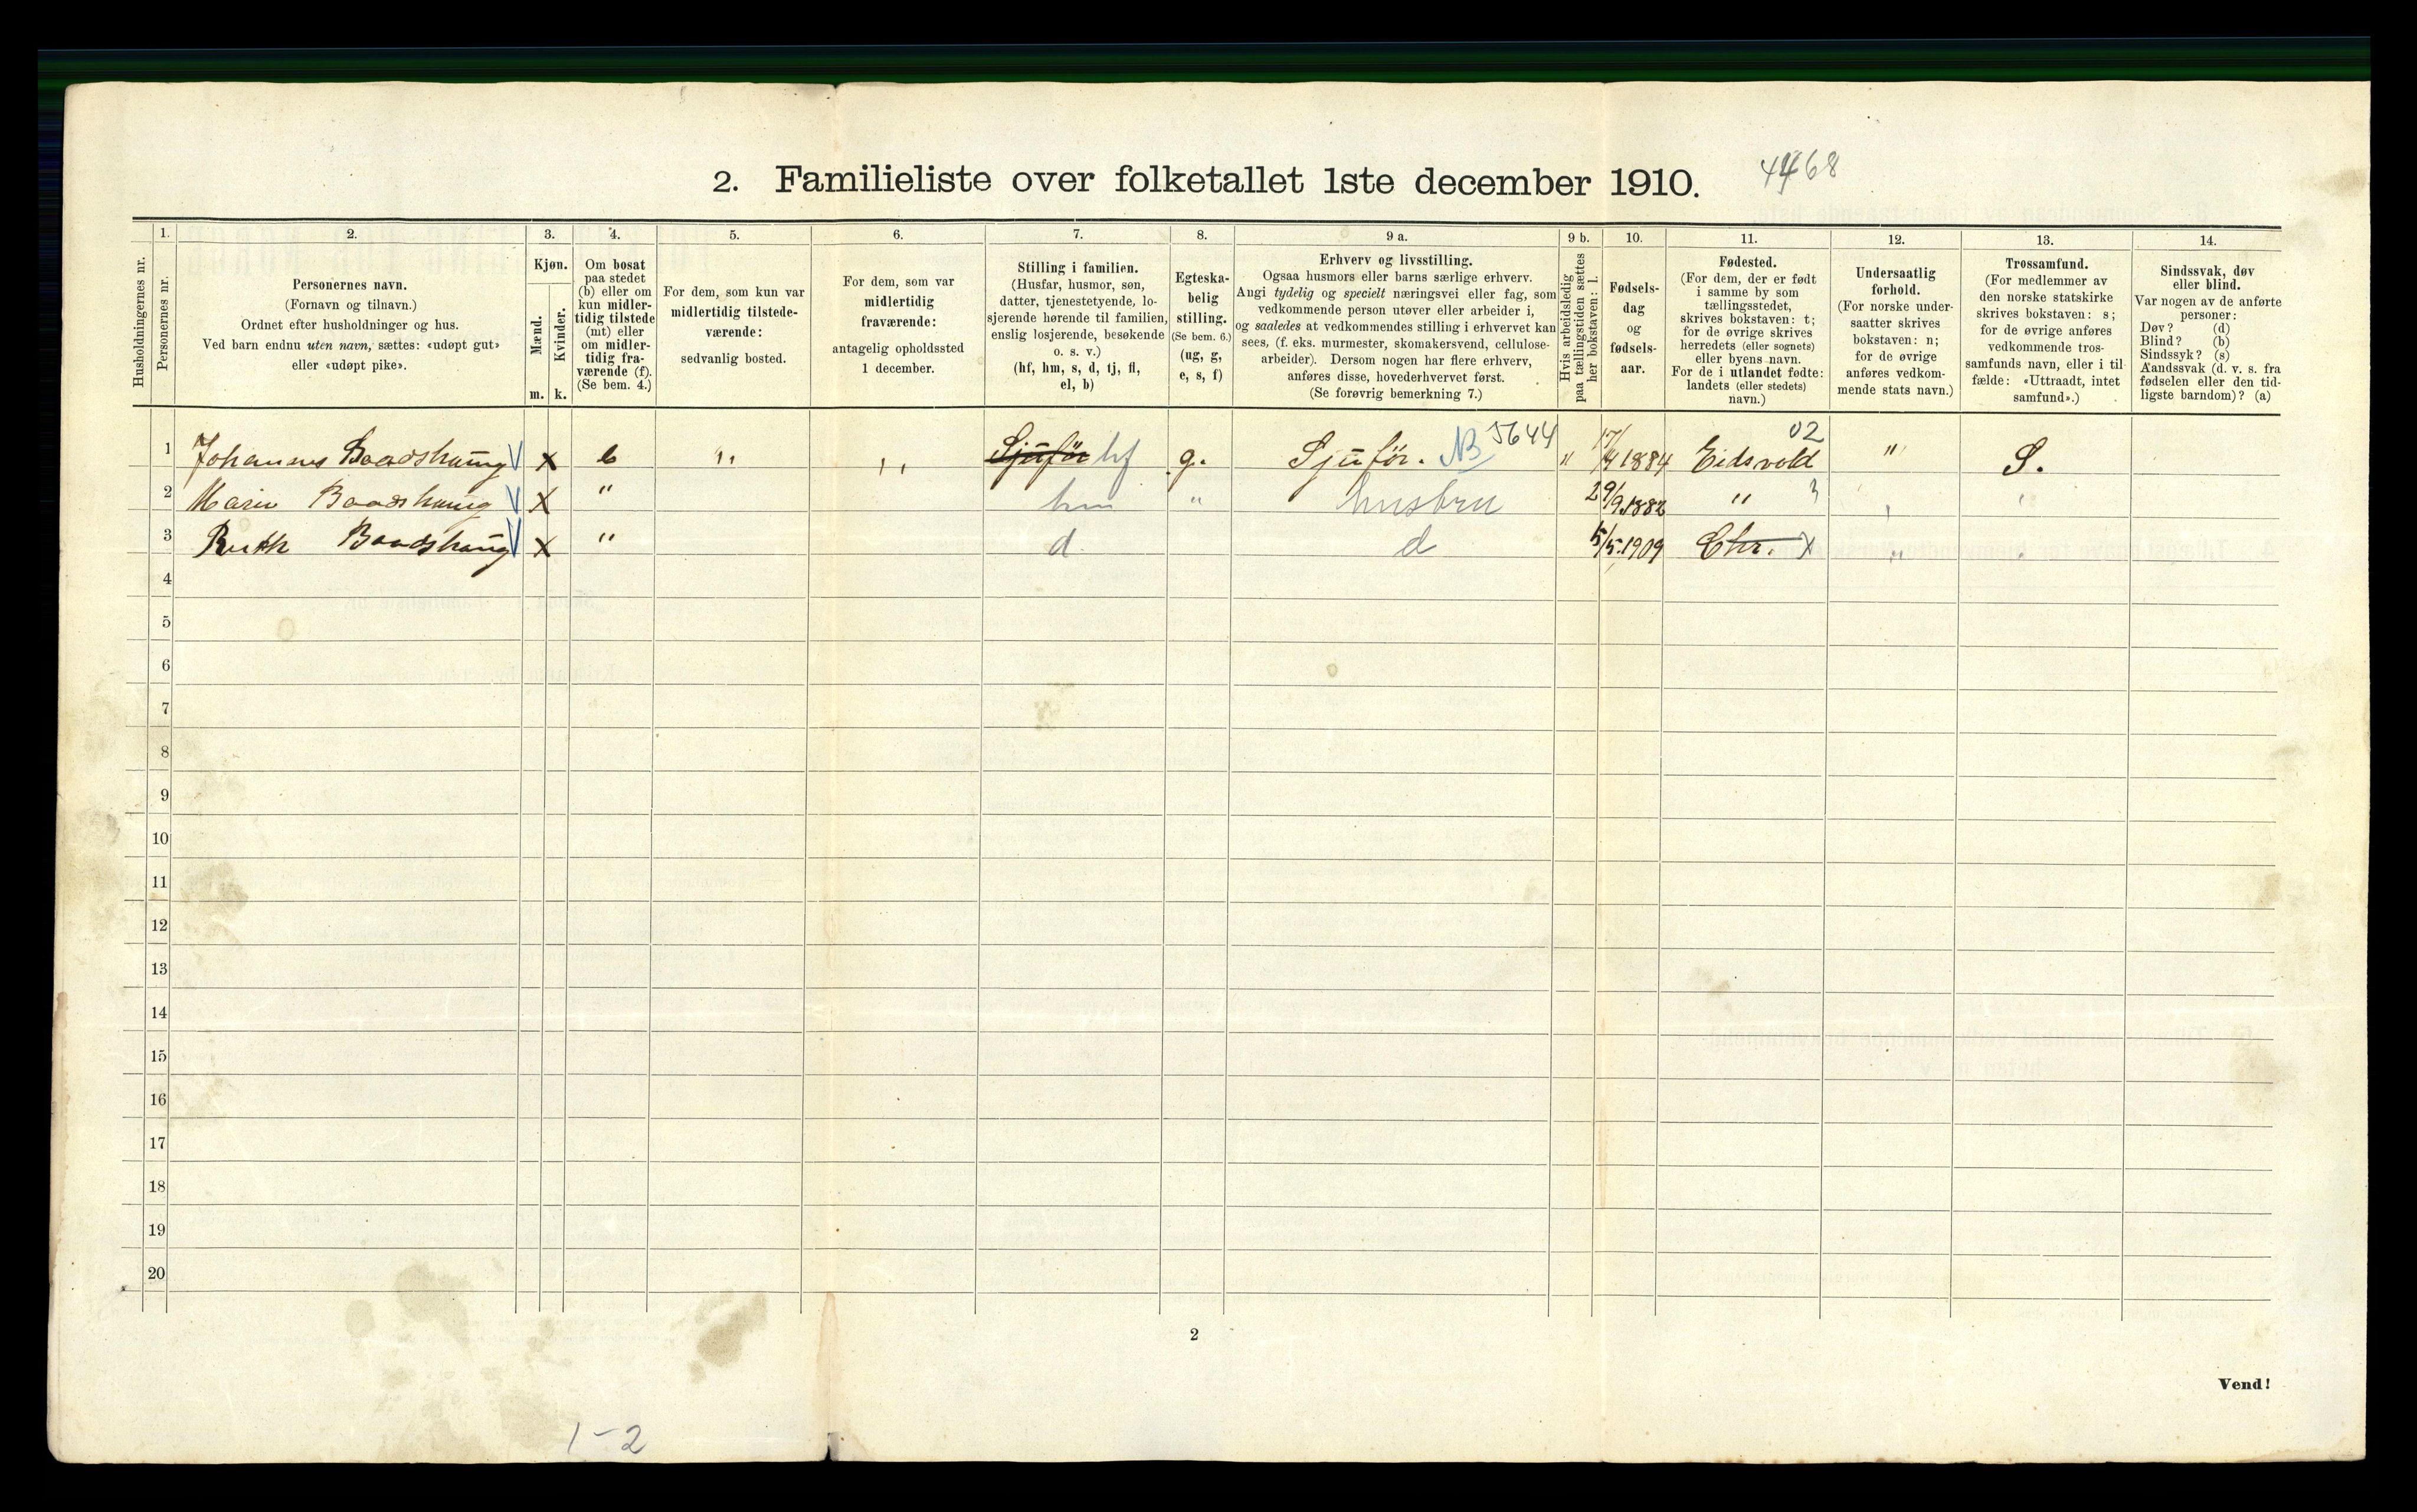 2. Familieliste over folketallet 1ste december 1910. 4468
Husholdningernes nr.
1. Personernes nr.
2.
Personernes navn.
(Fornavn og tilnavn.)
Ordnet efter husholdninger og hus.
Ved barn endnu uten navn, sættes: «udøpt gut»
eller «udøpt pike».
3.
Kjøn.
Mænd. Kvinder.
m. k.
4.
Om bosat
paa stedet
(b) eller om
kun midler-
tidig tilstede
(mt) eller
om midler-
tidig fra-
værende (f).
(Se bem. 4.)
5.
For dem, som kun var
midlertidig tilstede-
værende:
sedvanlig bosted.
6.
For dem, som var
midlertidig
fraværende:
antagelig opholdssted
1 december.
7.
Stilling i familien.
(Husfar, husmor, søn,
datter, tjenestetyende, lo-
sjerende hørende til familien,
enslig losjerende, besøkende
o. s. v.)
(hf, hm, s, d, tj, fl,
el, b)
8.
Egteska-
belig
stilling.
(Se bem. 6.)
(ug, g,
e, s, f)
9 a.
Erhverv og livsstilling.
Ogsaa husmors eller barns særlige erhverv.
Angi tydelig og specielt næringsvei eller fag, som
vedkommende person utøver eller arbeider i,
og saaledes at vedkommendes stilling i erhvervet kan
sees, (f. eks. murmester, skomakersvend, cellulose-
arbeider). Dersom nogen har flere erhverv,
anføres disse, hovederhvervet først.
(Se forøvrig bemerkning 7.)
9 b.
Hvis arbeidsledig
paa tællingstiden sættes
her bokstaven: l.
10.
Fødsels-
dag
og
fødsels-
aar.
11.
Fødested.
(For dem, der er født
i samme by som
tællingsstedet,
skrives bokstaven: t;
for de øvrige skrives
herredets (eller sognets)
eller byens navn.
For de i utlandet fødte:
landets (eller stedets)
navn.)
12.
Undersaatlig
forhold.
(For norske under-
saatter skrives
bokstaven: n;
for de øvrige
anføres vedkom-
mende stats navn.)
13.
Trossamfund.
(For medlemmer av
den norske statskirke
skrives bokstaven: s;
for de øvrige anføres
vedkommende tros-
samfunds navn, eller i til-
fælde: «Uttraadt, intet
samfund».)
14.
Sindssvak, døv
eller blind.
Var nogen av de anførte
personer:
Døv? (d)
Blind? (b)
Sindssyk? (s)
Aandssvak (d. v. s. fra
fødselen eller den tid-
ligste barndom)? (a)
1 Johannes Baadshaug V x b " " Sjuför hf g. Sjuför. NB 5644 " 17/4 1884 Eidsvold 02 " S.
2 Marie Baadshaug V x " hm " husbru 29/9 1882 " "
3 Ruth Baadshaug V x " d d 5/5 1909 Chr. x "
4
5
6
7
8
9
10
11
12
13
14
15
16
17
18
19
20
2
Vend!
1-2